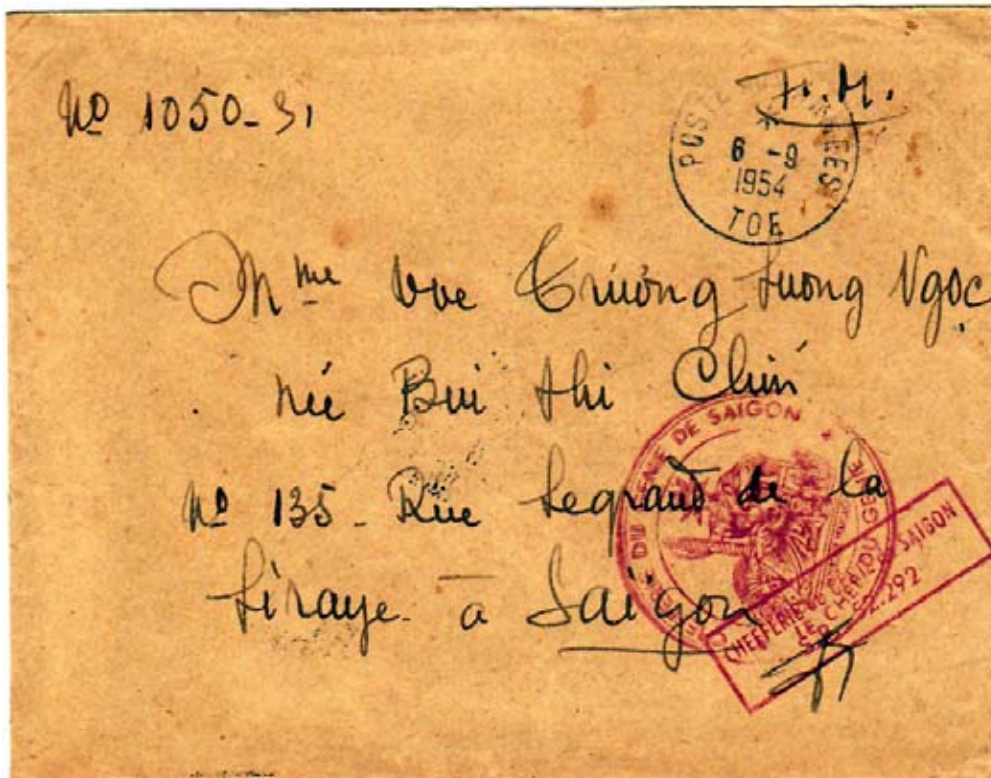 No 1050-S1
F.M.
POSTE ARMEES
6 -9
1954
TOE
Mme Vve Trương Lương Ngọc
née Bui thi Chín
No 135 - Rue Legrand de la
Liraye à Saïgon
GENIE DE SAIGON
CHEFFERIE DU GENIE SAIGON
LE CHEF DU GENIE
S.P. 52.292